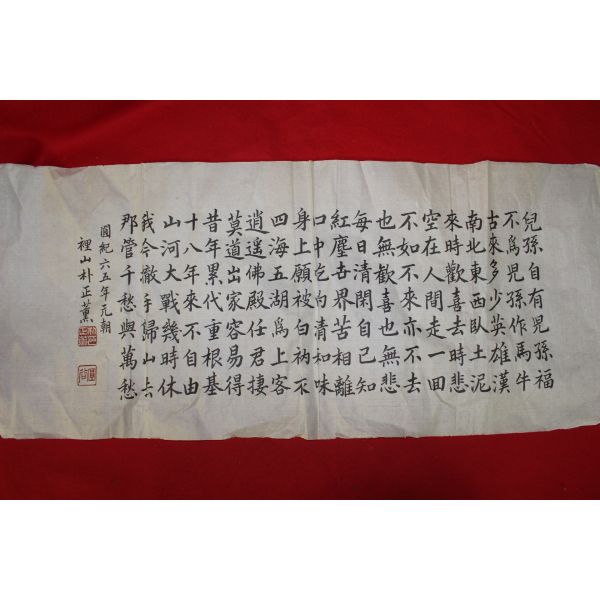 兒孫自有兒孫福
不爲兒孫作馬牛
古來多少英雄漢
南北東西臥土泥
來時歡喜去時悲
空在人間走一回
不如不來亦不去
也無歡喜也無悲
每日清閑自己知
紅塵吾界苦相離
口中清和味
身上願被白衲衣
四海五湖爲上客
逍遥佛殿任君棲
莫道出家容易得
昔年累代重根基
十八年來不自由
山河大戰幾時休
我今撤手歸山去
那管千愁與萬愁
圓紀六五年元朝
裡山朴正薫